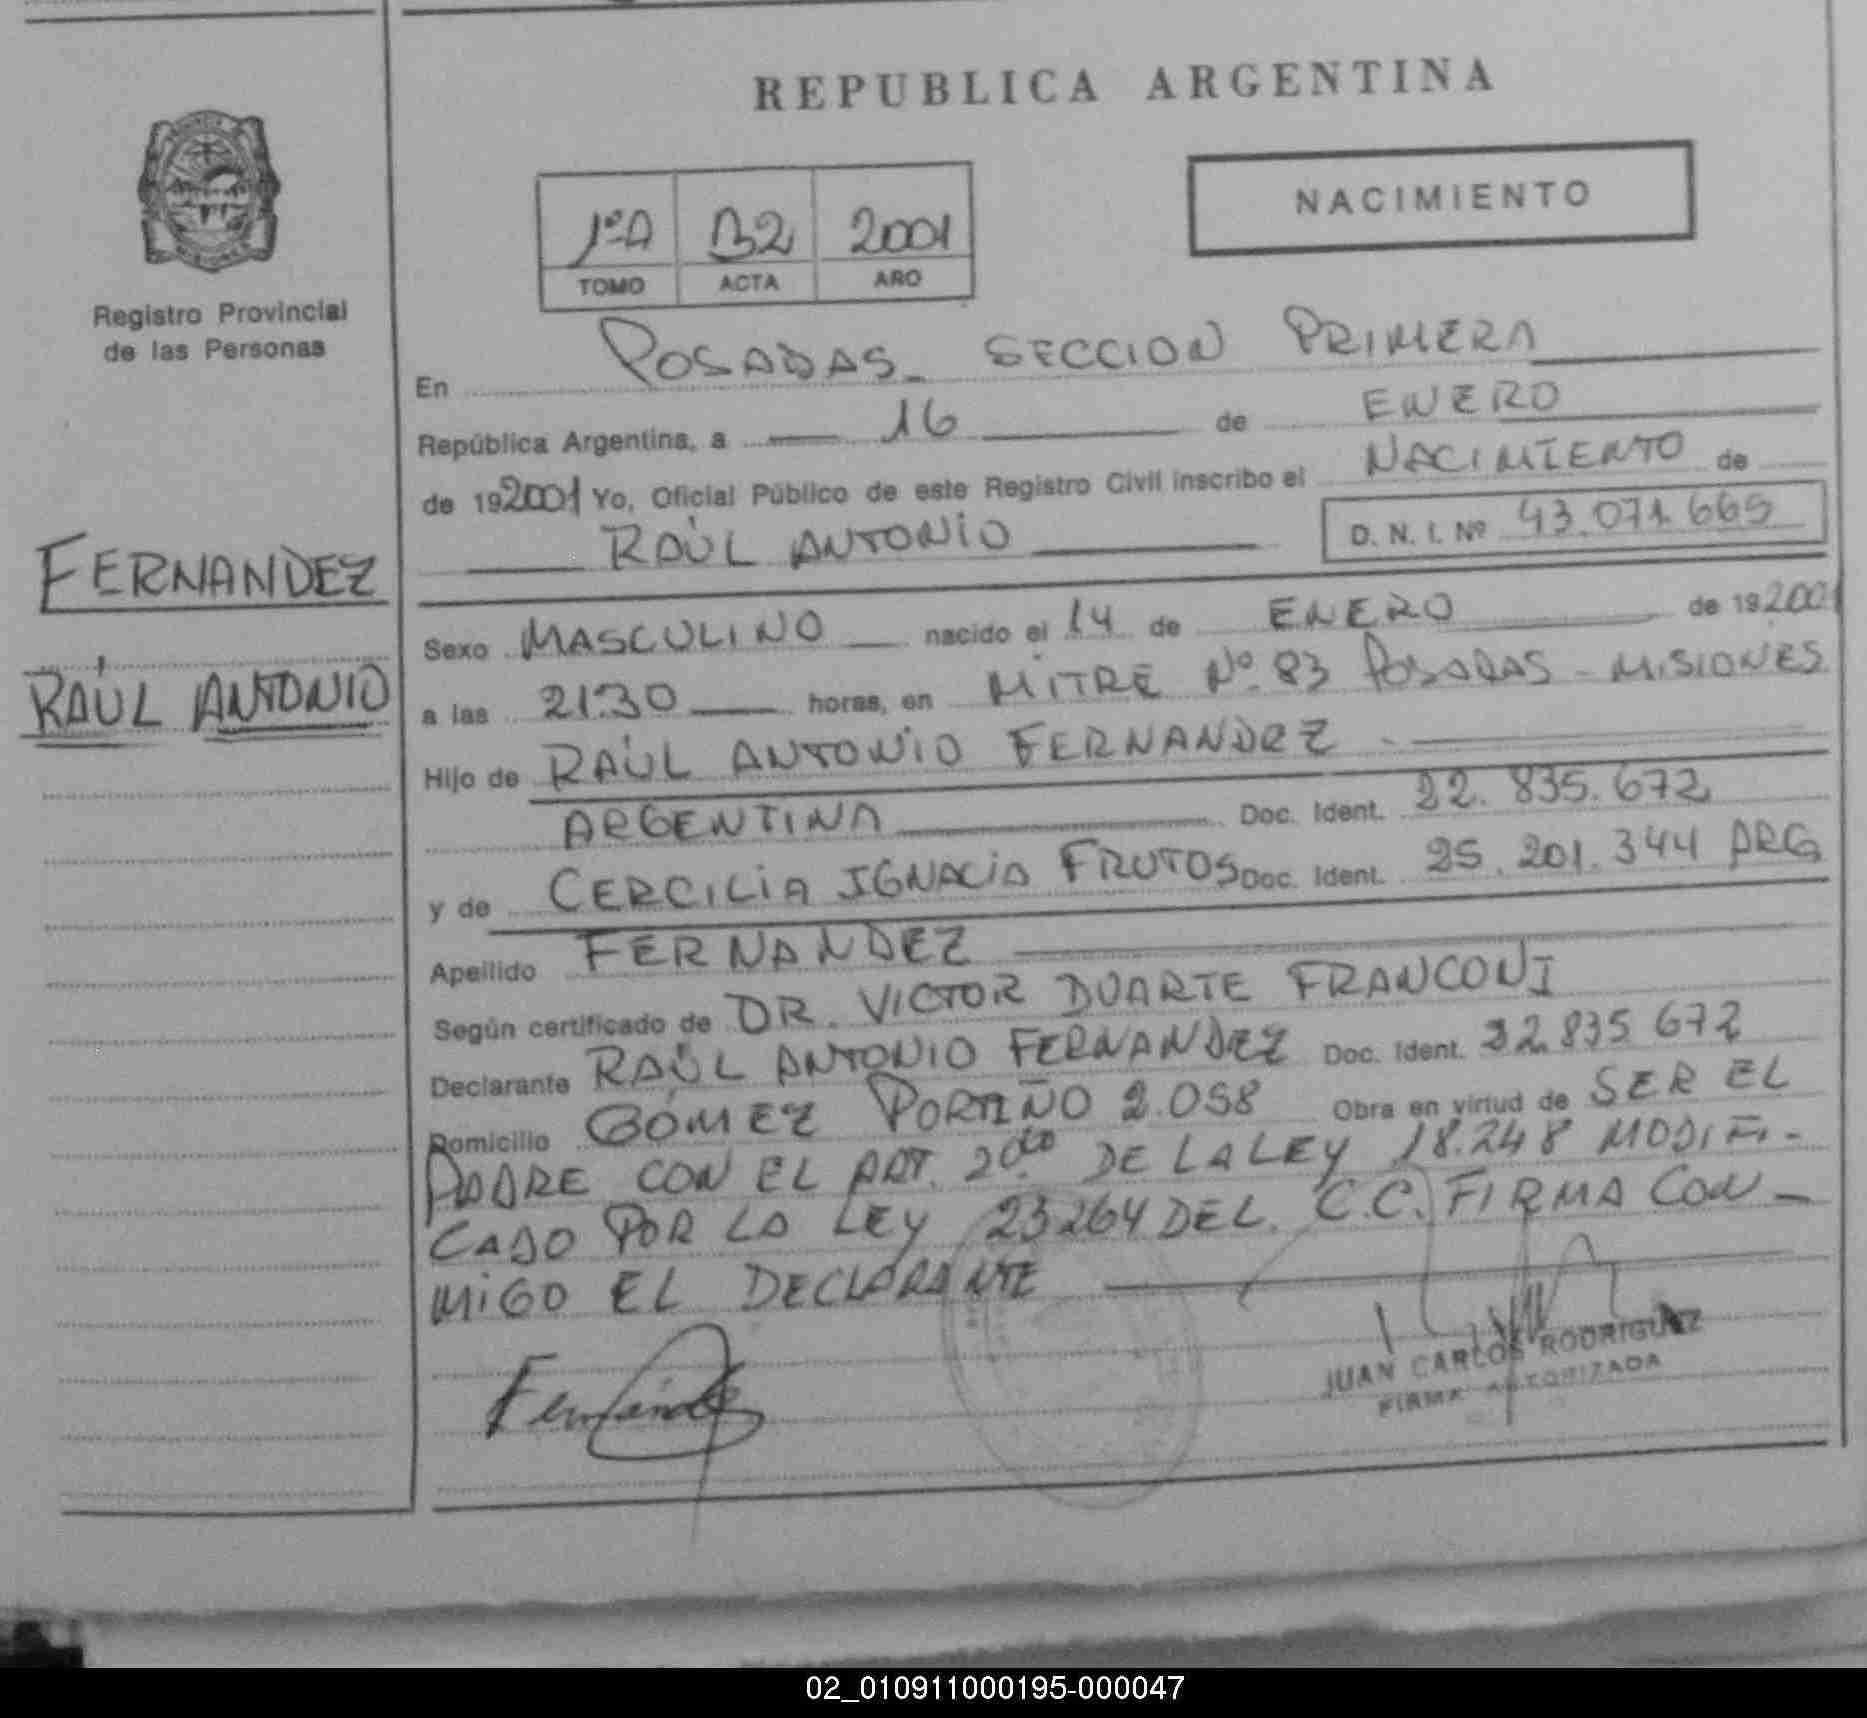 REPUBLICA ARGENTINA
NACIMIENTO
1ºA B2 2001
TOMO ACTA AÑO
Registro Provincial
de las Personas
FERNANDEZ
RAÚL ANTONIO
En POSADAS - SECCION PRIMERA
República Argentina, a 16 de ENERO
de 192001 Yo, Oficial Público de este Registro Civil inscribo el NACIMIENTO de
RAÚL ANTONIO
D. N. I. Nº 43.071.665
Sexo MASCULINO nacido el 14 de ENERO de 192001
a las 21:30 horas, en MITRE Nº 83 POSADAS - MISIONES
Hijo de RAÚL ANTONIO FERNANDEZ
ARGENTINA Doc. Ident. 22.835.672
y de CERCILIA IGNACIA FRUTOS Doc. Ident. 25.201.344 ARG
Apellido FERNANDEZ
Según certificado de DR. VICTOR DUARTE FRANCONI
Declarante RAÚL ANTONIO FERNANDEZ Doc. Ident. 22.835.672
Domicilio GÓMEZ PORTIÑO 2.058 Obra en virtud de SER EL
PADRE CON EL ART. 2do DE LA LEY 18.248 MODIFI-
CADO POR LA LEY 23264 DEL C.C. FIRMA CON-
MIGO EL DECLARANTE
Fernández
JUAN CARLOS RODRIGUEZ
FIRMA AUTORIZADA
02_010911000195-000047